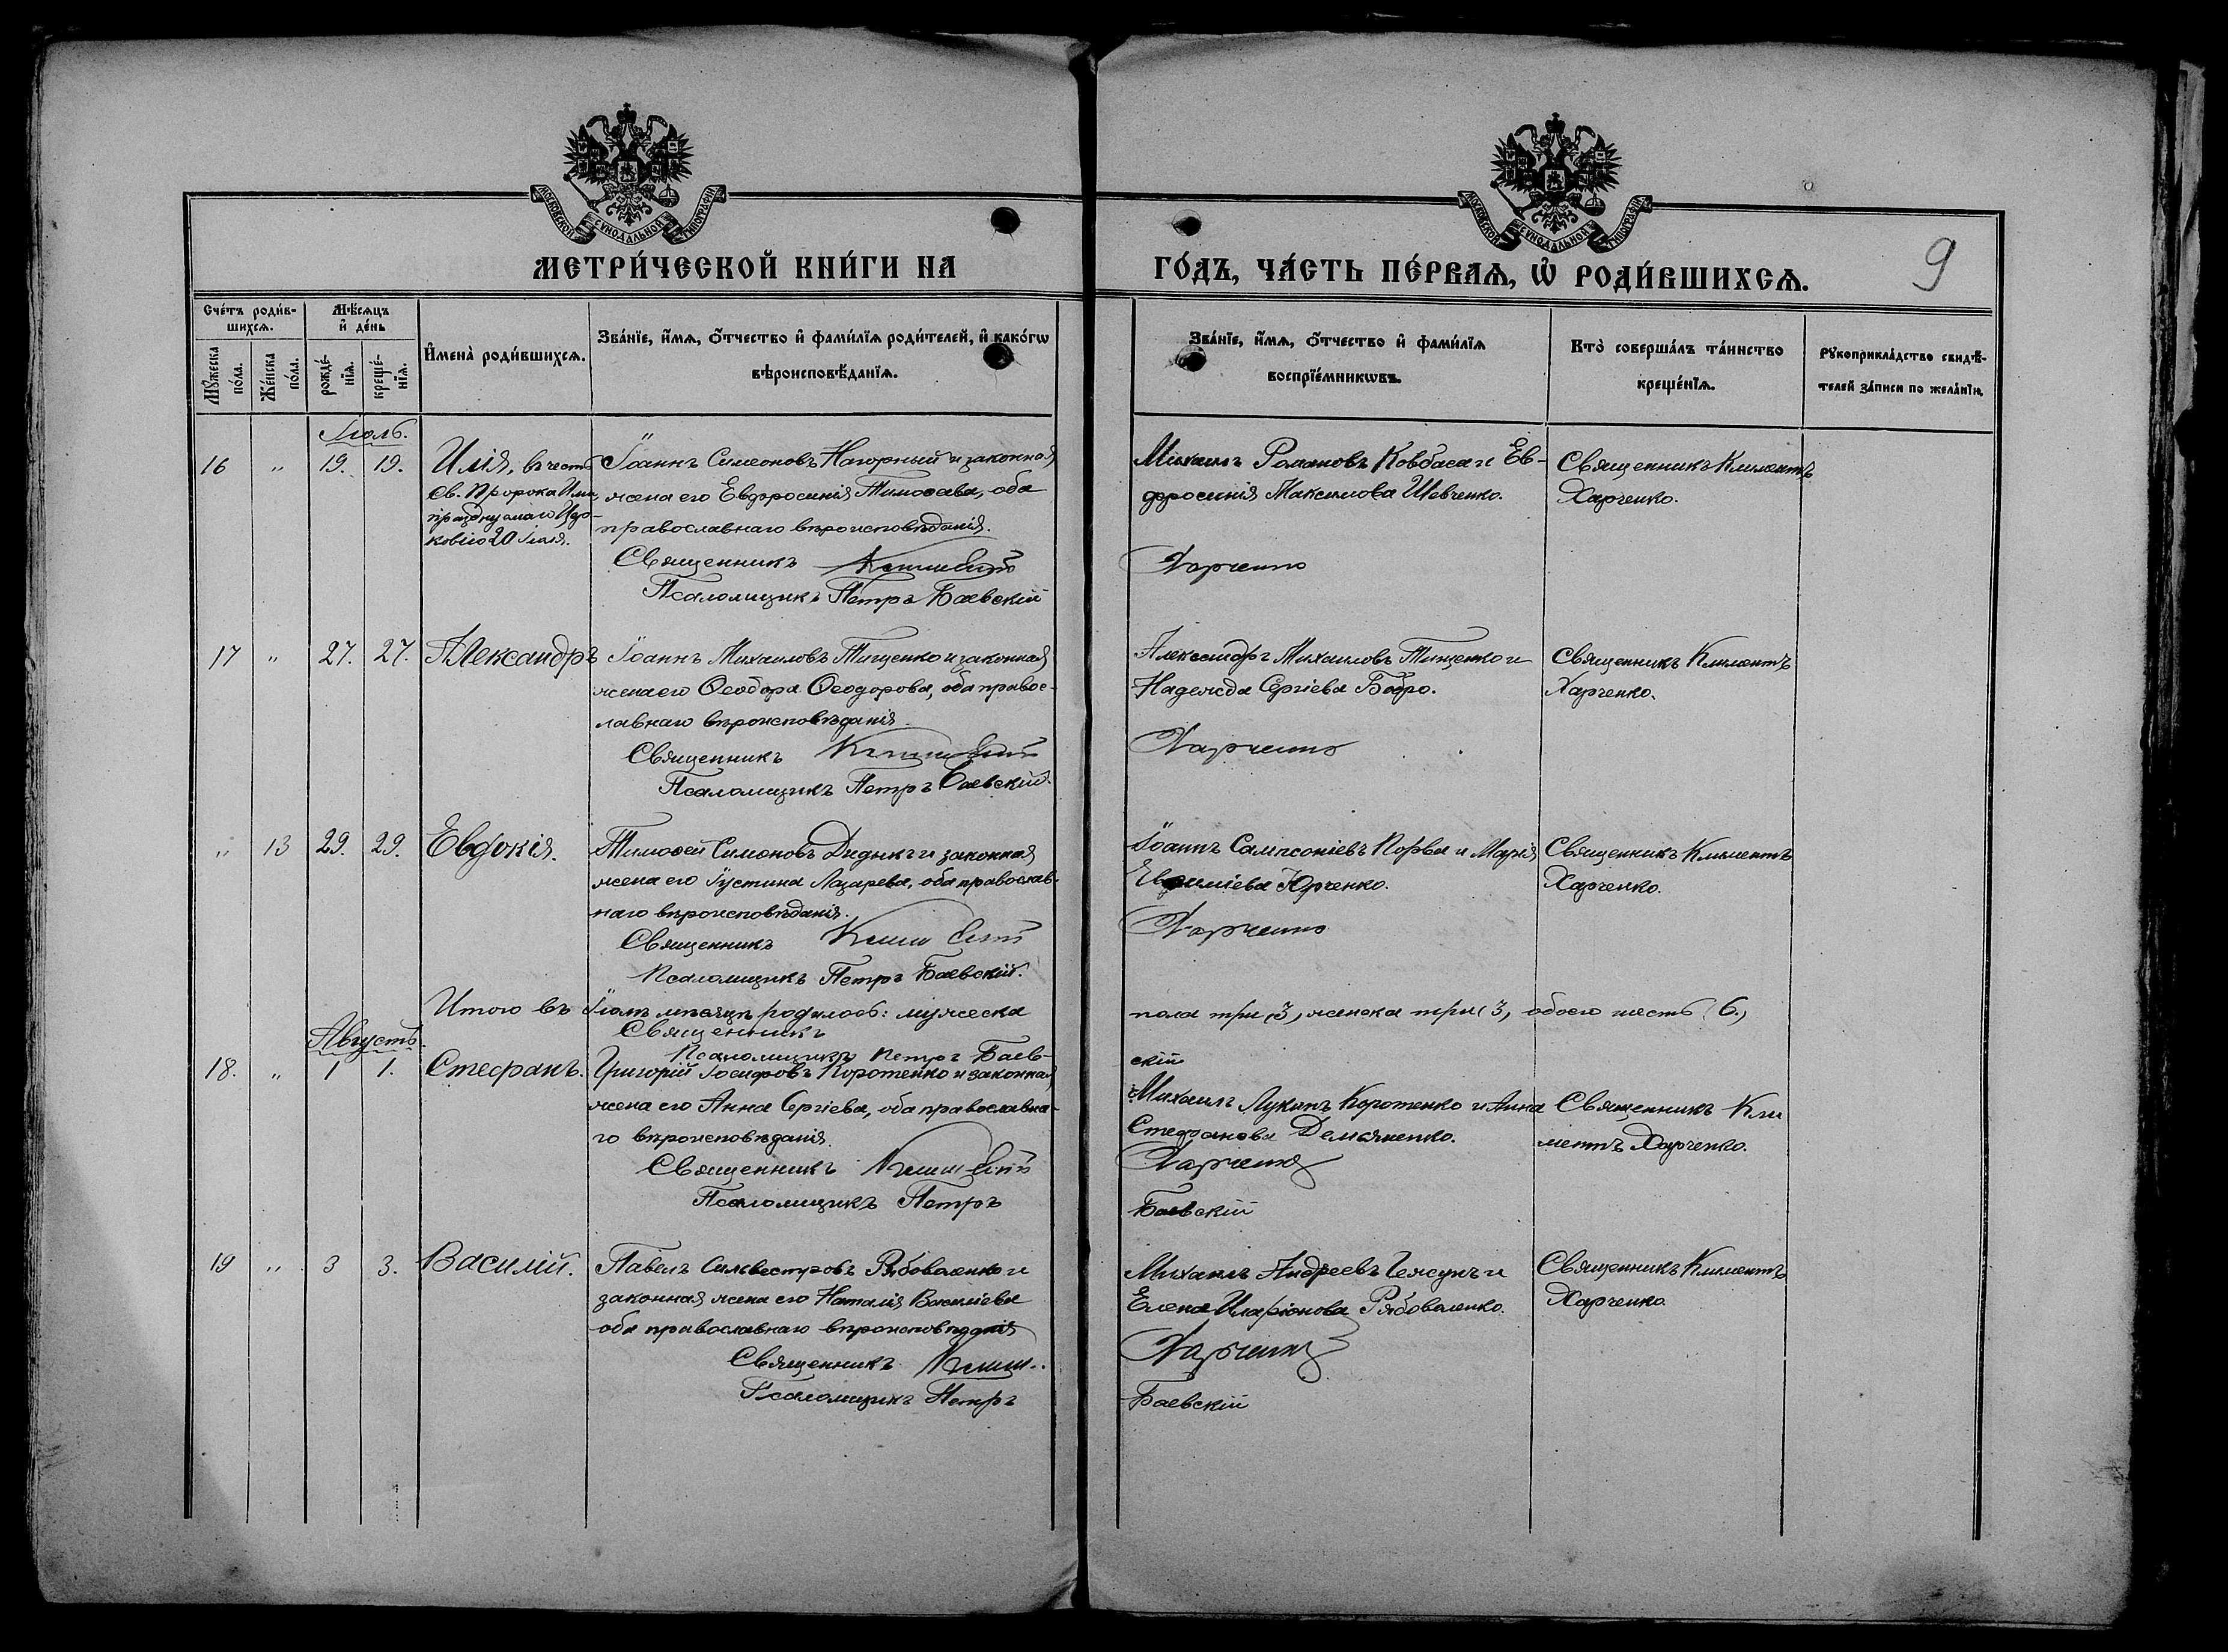 МОСКОВСКОЙ СѴНОДАЛЬНОЙ ТИПОГРАФІИ
МОСКОВСКОЙ СѴНОДАЛЬНОЙ ТИПОГРАФІИ
МЕТРИ́ЧЕСКОЙ КНИ́ГИ НА ГО́ДЪ, ЧА́СТЬ ПЕ́РВАѦ, Ѡ҆ РОДИ́ВШИХСѦ.
9
Сче́тъ роди́в-
шихсѧ.
Мꙋ́жеска
по́ла.
Же́нска
по́ла.
Мѣ́сѧцъ
и҆ де́нь
рожде́-
нїѧ.
креще́-
нїѧ.
И҆мена̀ роди́вшихсѧ.
Зва́нїе, и҆́мѧ, ѻ҆́тчество и҆ фами́лїѧ роди́телей, и҆ како́гѡ
вѣроисповѣ́данїѧ.
Зва́нїе, и҆́мѧ, ѻ҆́тчество и҆ фами́лїѧ
воспрїе́мникѡвъ.
Кто̀ соверша́лъ та́инство
креще́нїѧ.
Рꙋкоприкла́дство свидѣ́-
телей за́писи по жела́нїю.
Іюль.
16 " 19. 19. Илія, въ честь
Св. Пророка Иліи,
празднуемаго Цер-
ковію 20 Іюля.
Іоаннъ Симеоновъ Нагорный и законная
жена его Евфросинія Тимоѳеева, оба
православнаго вѣроисповѣданія.
Священникъ Климентъ
Псаломщикъ Петръ Баевскій
Михаилъ Романовъ Ковбаса и Ев-
фросинія Максимова Шевченко.
Харченко
Священникъ Климентъ
Харченко.
17 " 27. 27. Александръ
Іоаннъ Михаиловъ Тищенко и законная
жена его Ѳеодора Ѳеодорова, оба правос-
лавнаго вѣроисповѣданія.
Священникъ Климентъ
Псаломщикъ Петръ Баевскій.
Александръ Михаиловъ Тищенко и
Надежда Сергіева Бобро.
Харченко
Священникъ Климентъ
Харченко.
" 13 29. 29. Евдокія.
Тимоѳей Симоновъ Дидыкъ и законная
жена его Іустина Лазарева, оба православ-
наго вѣроисповѣданія.
Священникъ Климентъ
Псаломщикъ Петръ Баевскій.
Іоаннъ Сампсоніевъ и Марія
Юрченко.
Харченко
Священникъ Климентъ
Харченко.
Итого въ Іюлѣ мѣсяцѣ родилось: мужеска пола три (3), женска три (3), обоего шесть (6.)
Священникъ
Псаломщикъ Петръ Баев-
скій
Августъ.
18. " 1 1. Стефанъ.
Григорій Іосифовъ Коротенко и законная
жена его Анна Сергіева, оба православна-
го вѣроисповѣданія.
Священникъ Климентъ
Псаломщикъ Петръ
Михаилъ Лукинъ Коротенко и Анна
Стефанова Демяненко.
Харченко
Баевскій
Священникъ Кли
ментъ Харченко.
19 " 3 3. Василій.
Павелъ Сильвестровъ Рябоваленко и
законная жена его Наталія Василіева
оба православнаго вѣроисповѣданія
Священникъ Климен.
Псаломщикъ Петръ
Михаилъ Андреевъ и
Елена Иларіонова Рябоваленко.
Харченко
Баевскій
Священникъ Климентъ
Харченко